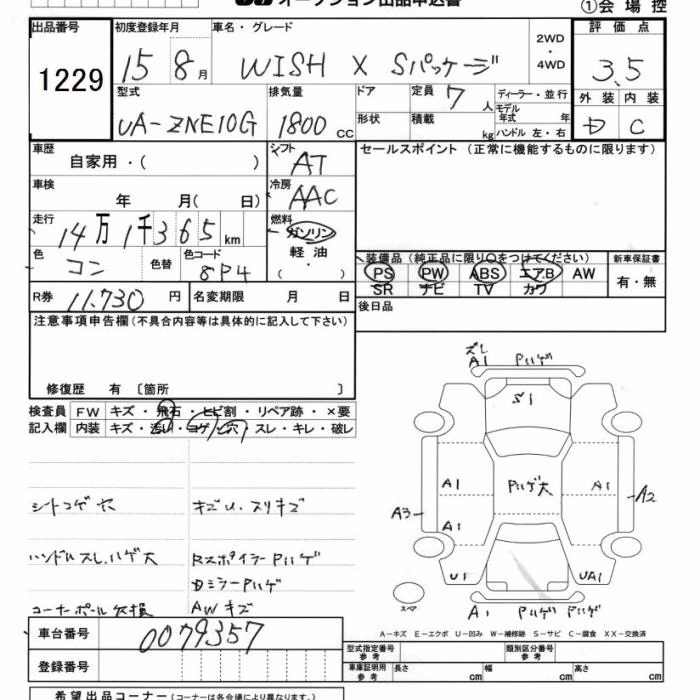 オークション出品申込書
①会場控
出品番号
1229
初度登録年月
15 8月
車名・グレード
WISH X Sパッケージ
2WD
・
4WD
評価点
3.5
外装 内装
D C
型式
UA-ZNE10G
排気量
1800 CC
ドア
形状
定員 7 人
積載 kg
ディーラー・並行
モデル年式 年
ハンドル 左・右
車歴
自家用・( )
シフト
AT
車検
年 月( 日)
冷房
AAC
走行
14万1千365km
燃料
ガソリン
軽油
( ・ )
色
コン
色替
色コード
8P4
R券 11.730 円
名変期限 月 日
セールスポイント (正常に機能するものに限ります)
装備品 (純正品に限り○をつけてください)
PS PW ABS エアB AW
SR ナビ TV カワ
新車保証書
有・無
後日品
注意事項申告欄(不具合内容等は具体的に記入して下さい)
修復歴 有 〔箇所 〕
検査員記入欄
FW キズ・飛石・ヒビ割・リペア跡・×要
内装 キズ・汚れ・コゲ・穴・スレ・キレ・破レ
シートコゲ穴
キズU、スリキズ
ハンドルスレ、ハゲ大
RスポイラーPハゲ
DミラーPハゲ
コーナーポール欠損
AWキズ
ズレ
A1 Pハゲ
S1
A1 Pハゲ大 A1
A3 A2
A1
U1 UA1
スペア
A1 Pハゲ Pハゲ
A−キズ E−エクボ U−凹み W−補修跡 S−サビ C−腐食 XX−交換済
車台番号
0079357
登録番号
型式指定番号
参考
類別区分番号
参考
車庫証明用
参考
長さ cm 幅 cm 高さ cm
希望出品コーナー(コーナーは各会場により異なります。)